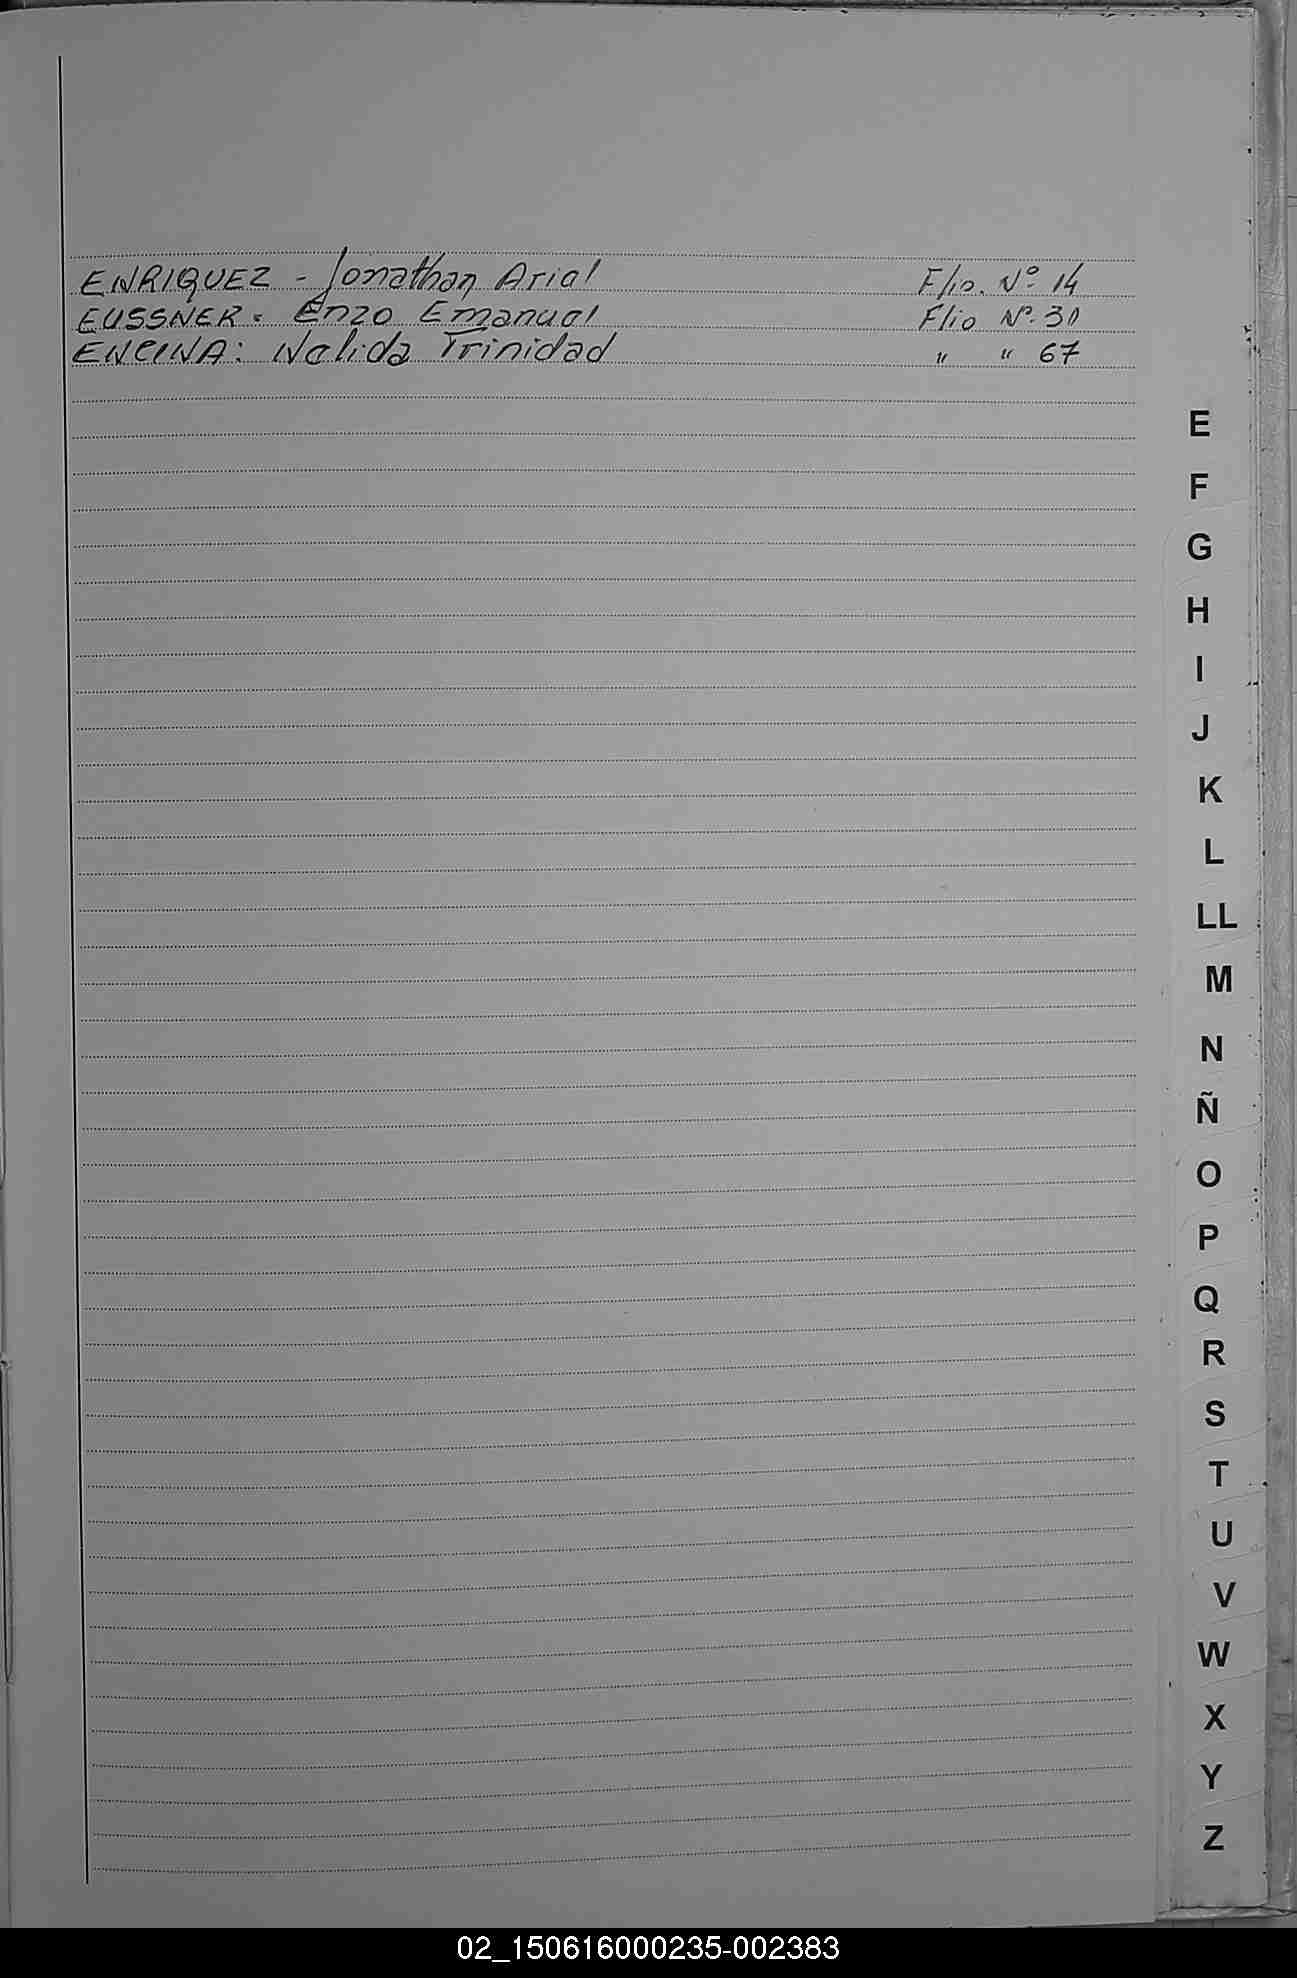 ENRIQUEZ - Jonathan Ariel Flio. Nº 14
EUSSNER. Enzo Emanuel Flio Nº 30
ENCINA: Nelida Trinidad " " 67
E
F
G
H
I
J
K
L
LL
M
N
Ñ
O
P
Q
R
S
T
U
V
W
X
Y
Z
02_150616000235-002383